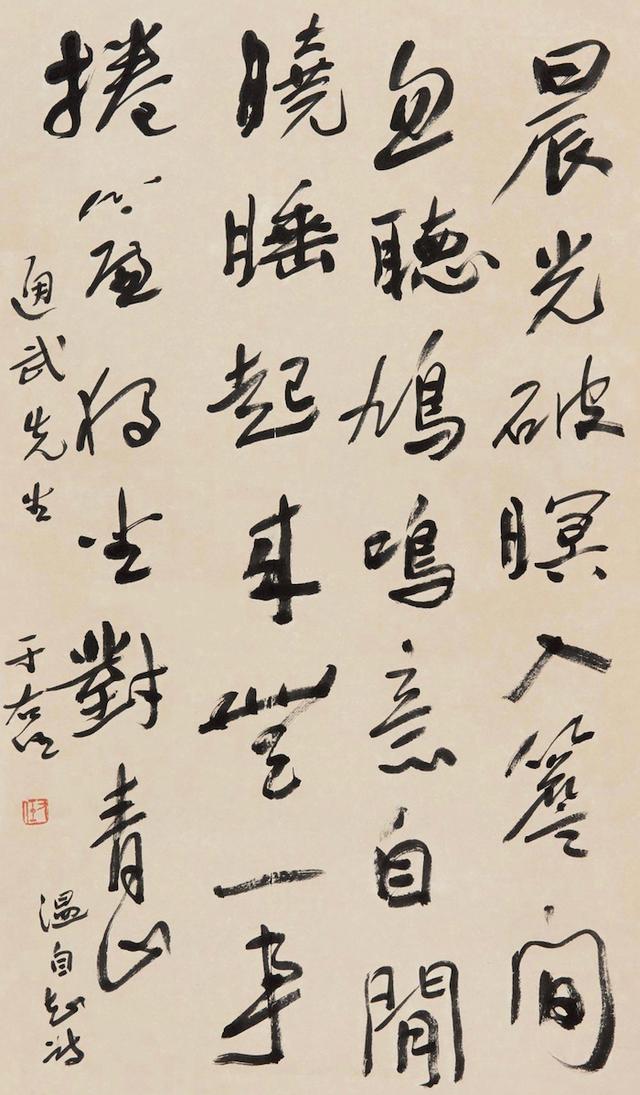 晨光破暝入簷間
忽聽鳩鳴意自閒
曉睡起來無一事
捲簾獨坐對青山
温自知詩
通武先生
于右任
右任